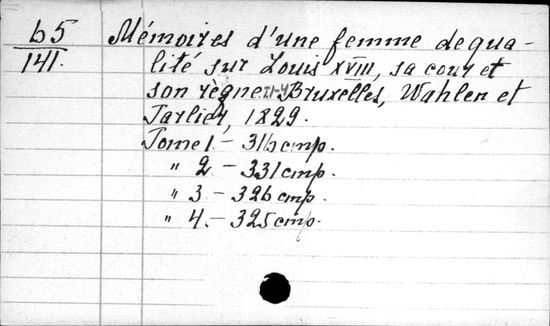 65 Mémoires d'une femme de qua-
141. lité sur Louis XVIII, sa cour et
son règne. Bruxelles, Wahlen et
Tarlier, 1829.
Tome 1 - 316 стр.
" 2 - 331 стр.
" 3. - 326 стр.
" 4. - 325 стр.